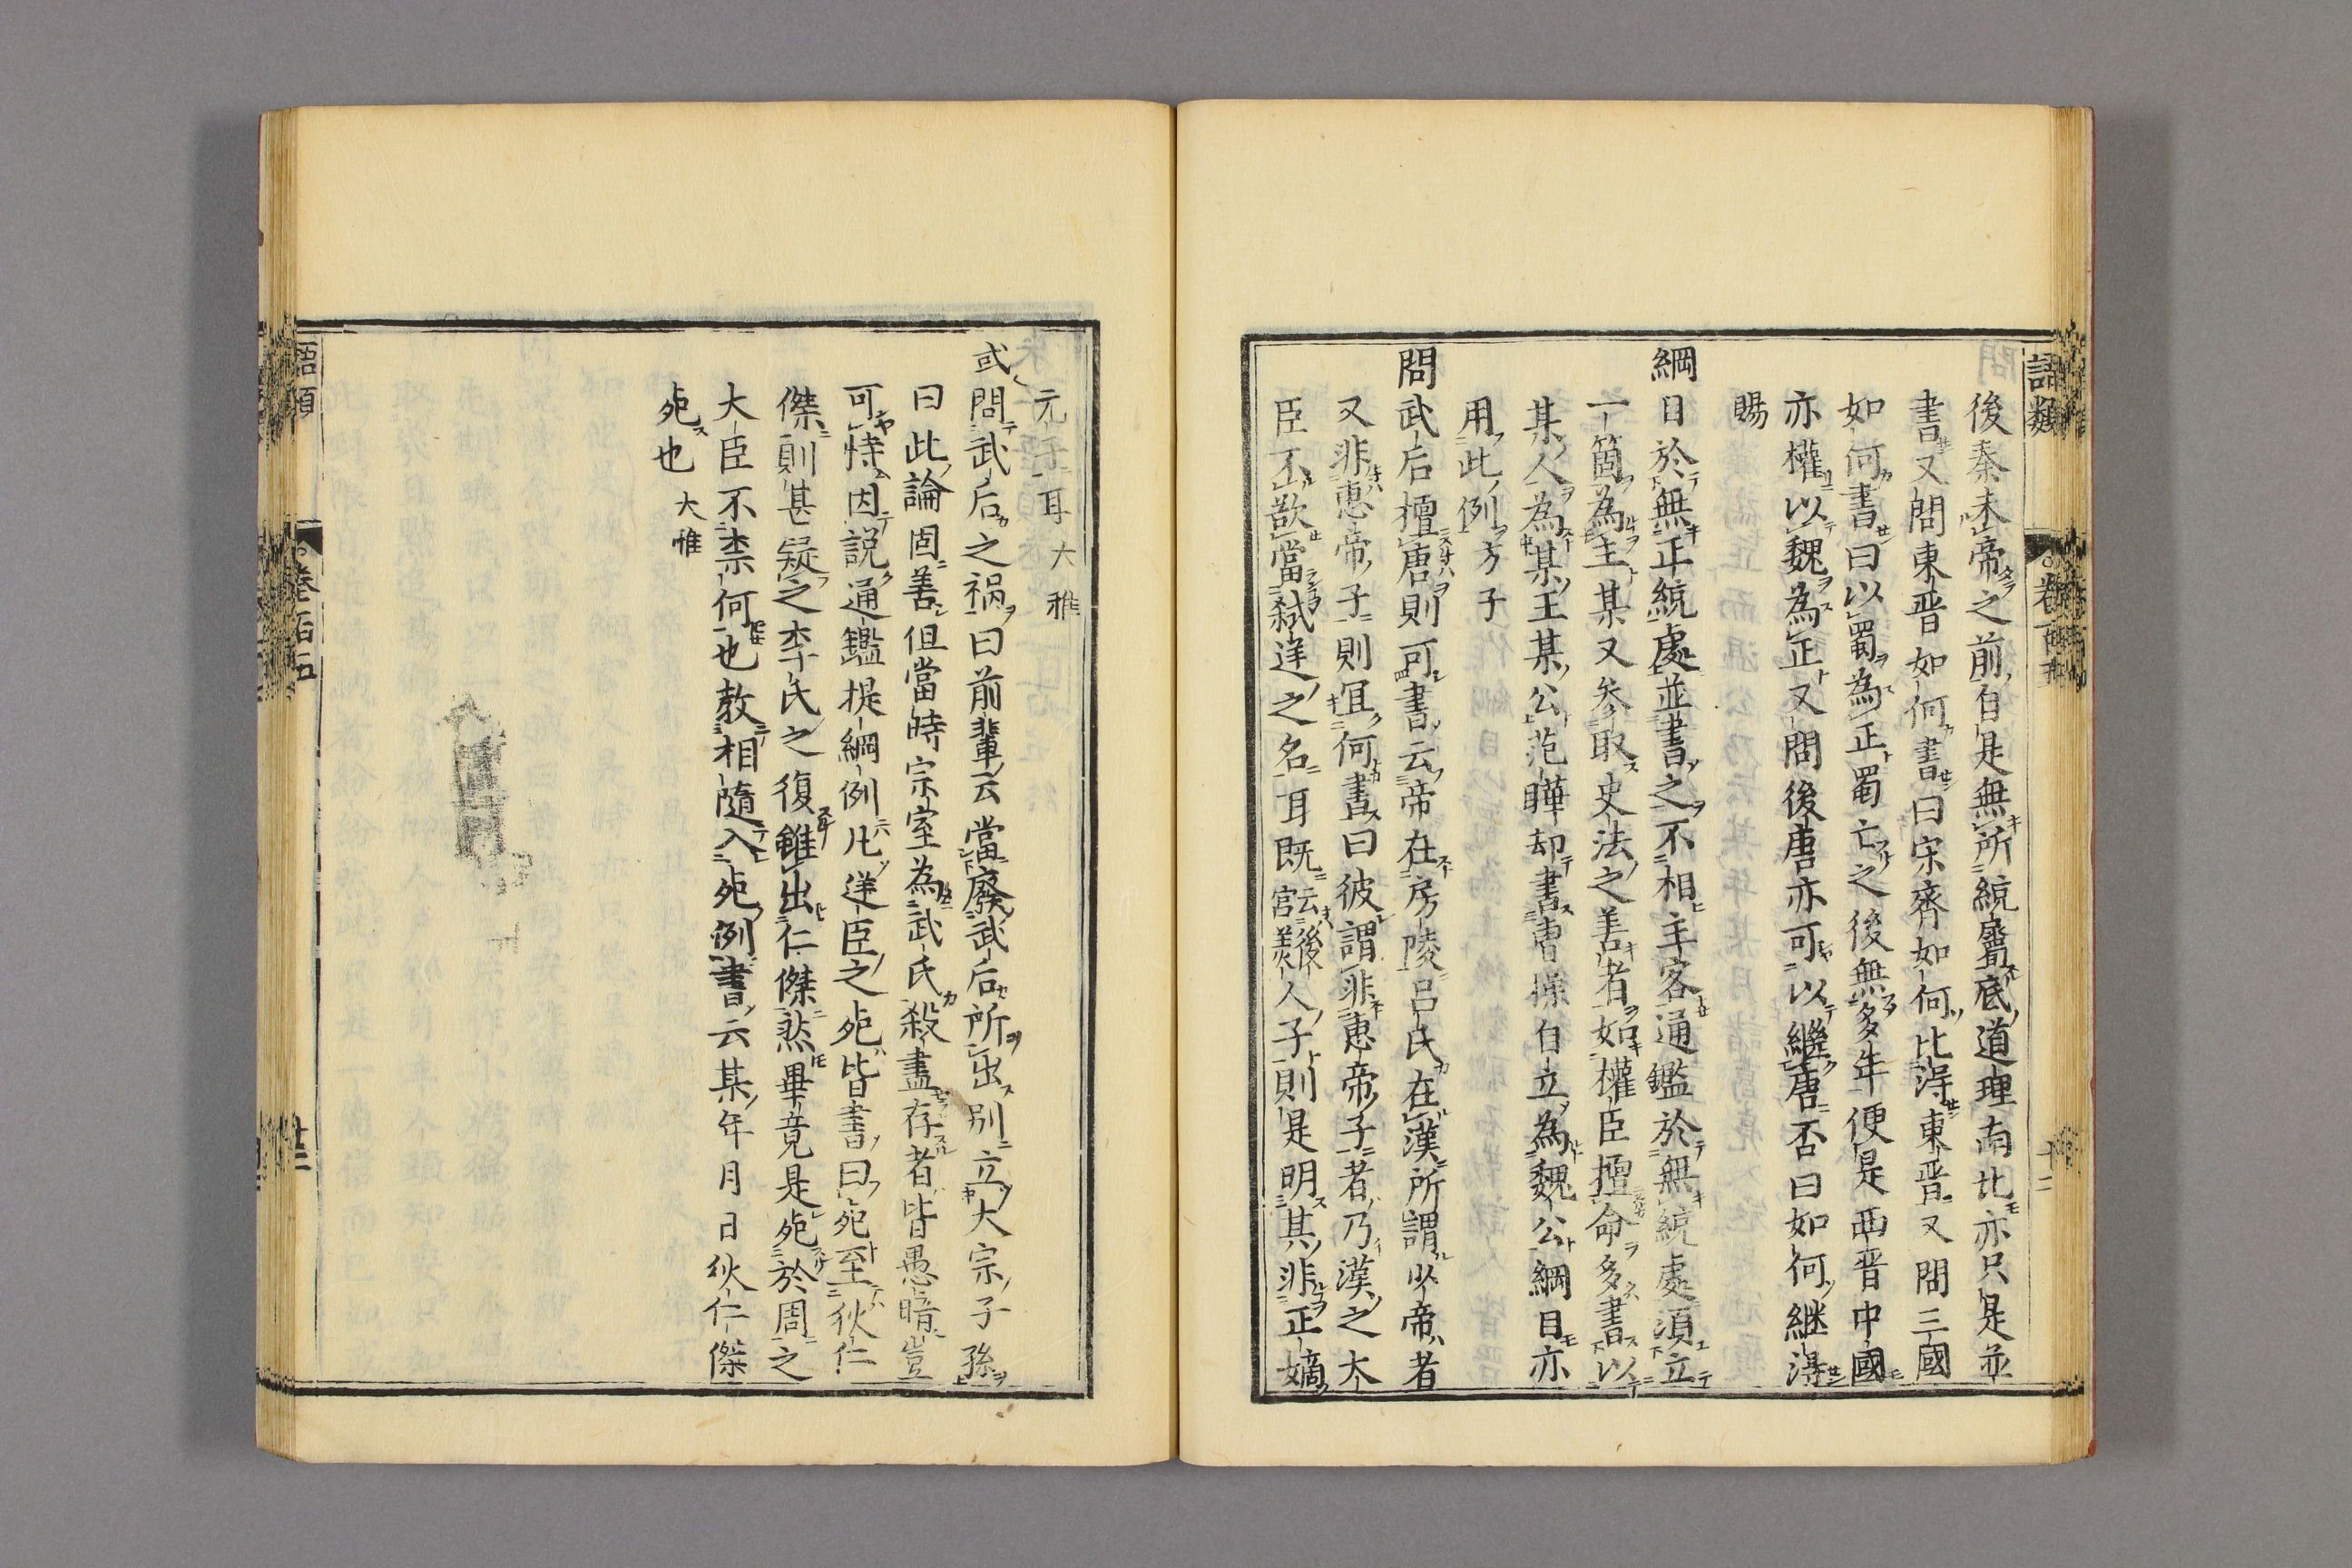 語類
卷一百五
十二
後秦未帝之前自是無所統屬底道理南北亦只是並
書又問東晋如何書曰宋齊如何比得東晋又問三國
如何書曰以蜀為正蜀亡之後無多年便是西晋中國
亦權以魏為正又問後唐亦可以繼唐否曰如何継得
賜
綱目於無正統處並書之不相主客通鑑於無統處須立
一箇為主某又參取史法之善者如權臣擅命多書以
某人為某王某公范曄却書曹操自立為魏公綱目亦
用此例方子
問武后擅唐則可書云帝在房陵呂氏在漢所謂少帝者
又非惠帝子則冝何書曰彼謂非惠帝子者乃漢之大
臣不欲當弑逆之名耳既云後宮羙人子則是明其非正嫡
元子耳大雅
或問武后之禍曰前輩云當廢武后所出别立太宗子孫
曰此論固善但當時宗室為武氏殺盡存者皆愚暗豈
可恃因説通鑑提綱例凡逆臣之死皆書曰死至狄仁
傑則甚疑之李氏之復雖出仁傑然畢竟是死於周之
大臣不柰何也教相隨入死例書云某年月日狄仁傑
死也大雅
語類
卷一百五